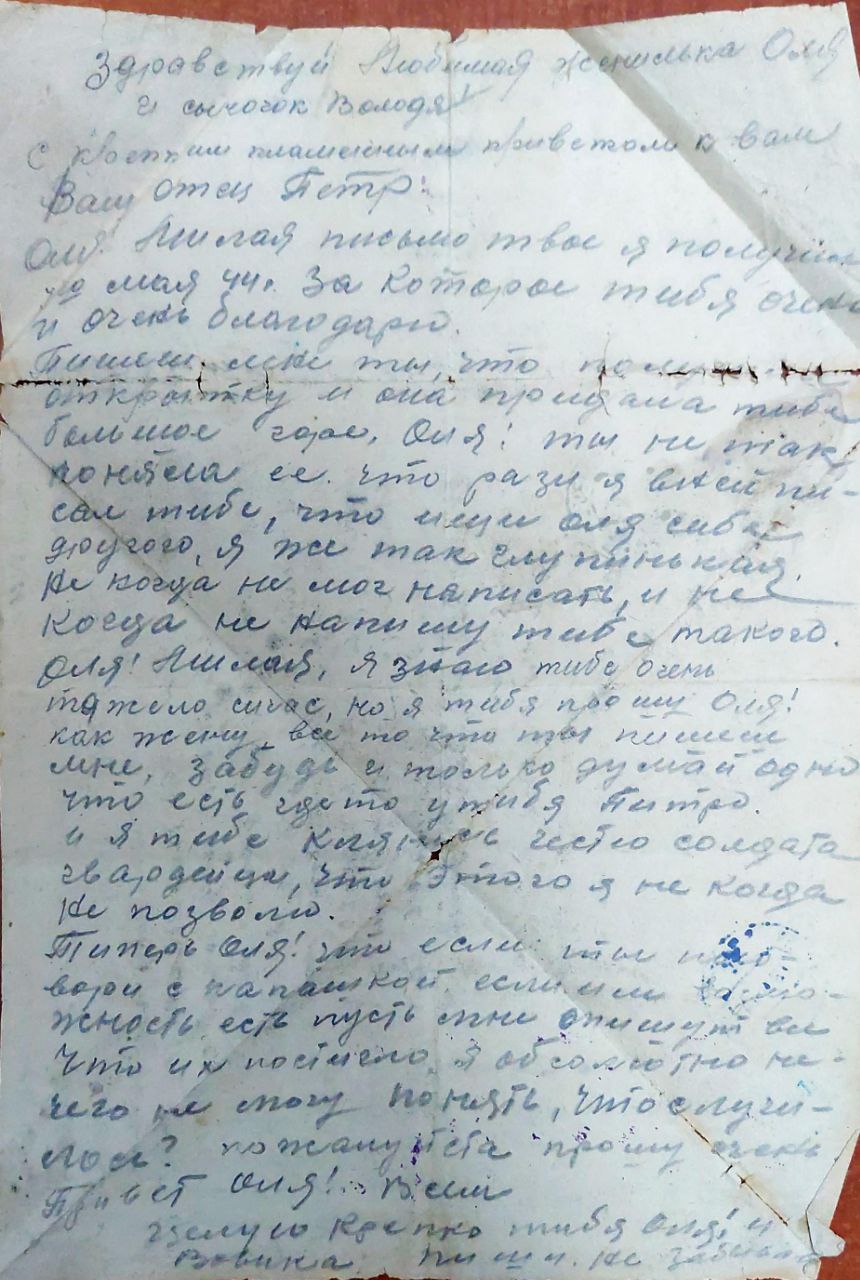 Здравствуй Любимая женилька Оля
и сыночок Володя!
С крепким пламенным приветом к вам
Ваш отец Петр.
Оля! Милая письмо твое я получил
мая 44г. За которое тибя очень
и очень благодарю.
Пишеш мне ты, что
открытку и она придала тибе
большое горе, Оля! ты не так
поняла ее. что рази я в ней пи-
сал тибе, что ищи Оля себе
другого, я же так глупинькая
Не когда не мог написать, и не
когда не напишу тибе такого.
Оля! Милая, я знаю тибе очень
тяжело сичас, но я тибя прошу Оля!
как жену все то что ты пишеш
мне, забудь и только думай одно
что есть гдето у тибя Питро.
и я тибе клянусь честю солдата
гвардейца, что этого я не когда
не позволю.
Типерь Оля! что если ты пого-
вори с папашкой если им возмо-
жность есть пусть мне опишут все
что их постигло, я обсолютно не-
чего не могу понять, что случи-
лось? пожалуйста прошу очень
Привет Оля! Всем
Целую крепко тибя Оля! и
Вовика. Пиши. Не забывай